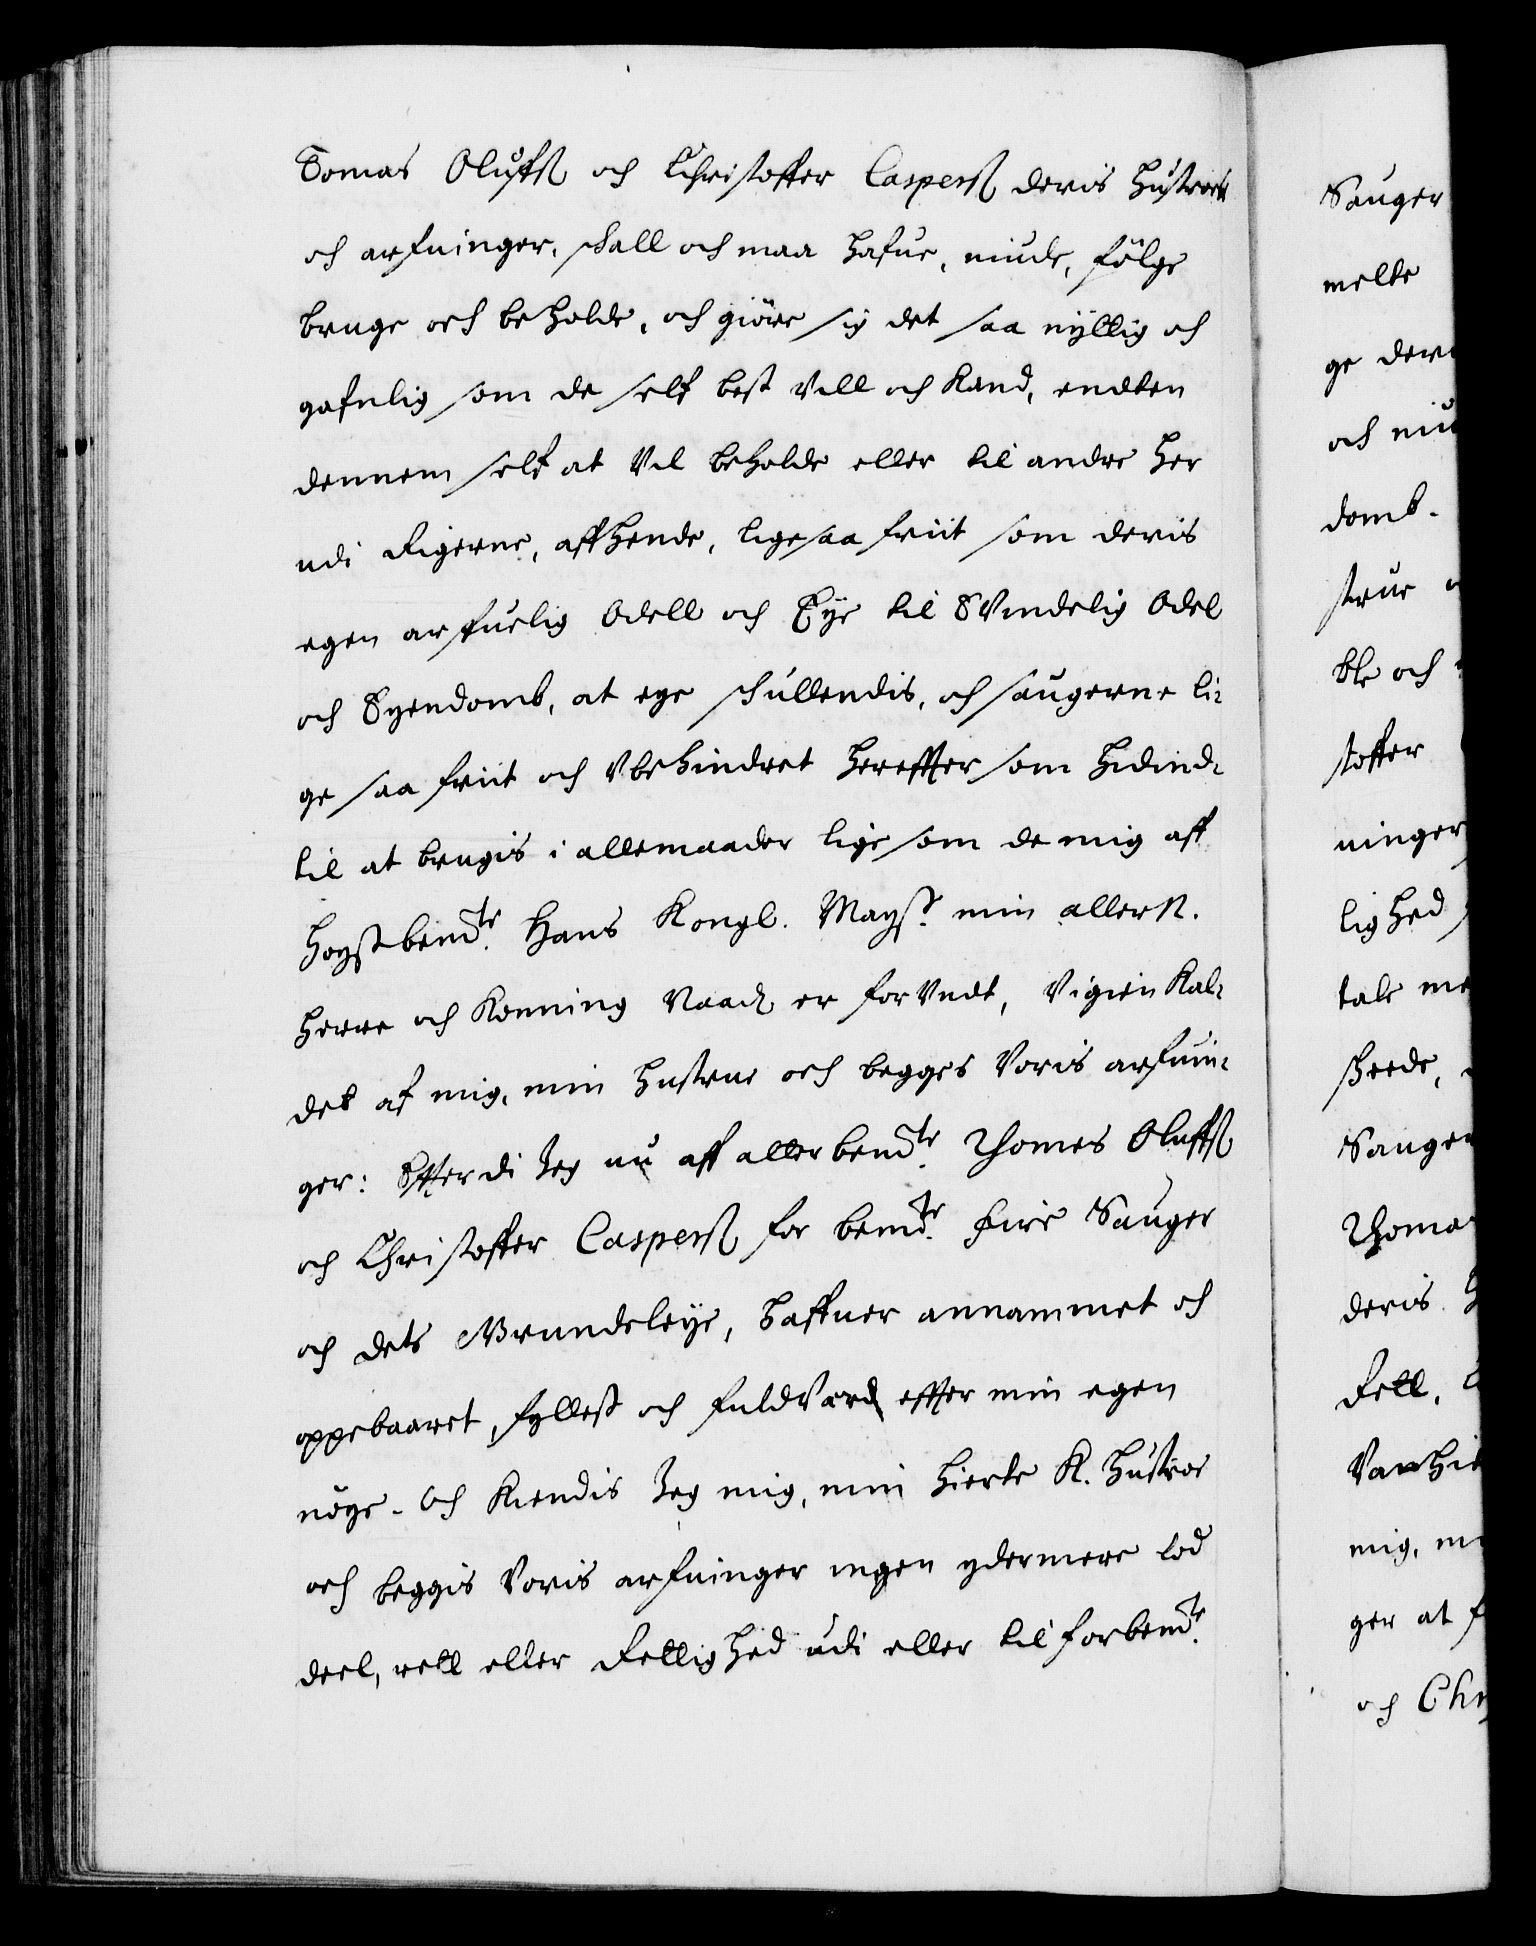 Tomas Olufsß och Christoffer Caspersß deris Hustroer
och arfuinger, schall och maa hafue, niude, følge
bruge och beholde, och giøre sig det saa nyttig och
gafnlig som de self best vill och kand, endten
dennem self at vil beholde eller til andre her
udi Rigerne, affhende, ligesaa friit som deris
egen arfuelig Odell och Eye til Evindelig Odel
och Eyendomb, at eye schullendis, och saugerne li-
ge saa friit och Vbehindret hereffter som hidind-
til at brugis i allemaader lige som de mig aff
høystbemte. Hans Kongl. Mayst. min allern.
Herre och Konning naad. er forVndt, Vigien Kal-
det af mig, min Hustrue och begges Voris arfuin-
ger: Efterdi Jeg nu aff allerbemte. Thomes Olufß
och Christoffer Caspersß for bemte. fire Sauger
och dets Grundeleye, haffuer annammet och
oppebaaret, fyllest och fuldVærd effter min egen
nøye. Och Kiendis Jeg mig, min hierte K. Hustroe
och beggis Voris arfuinger ingen ydermere lod
deel, rett eller Rettighed udi eller til forbemte.
Sauger
melte
ge der
och niu
domb.
strue
ble och
stoffer
ninger
lighed
tale me
skeede,
Sauger
Thoma
deris
Rett,
mig, m
ger at f
och Chr